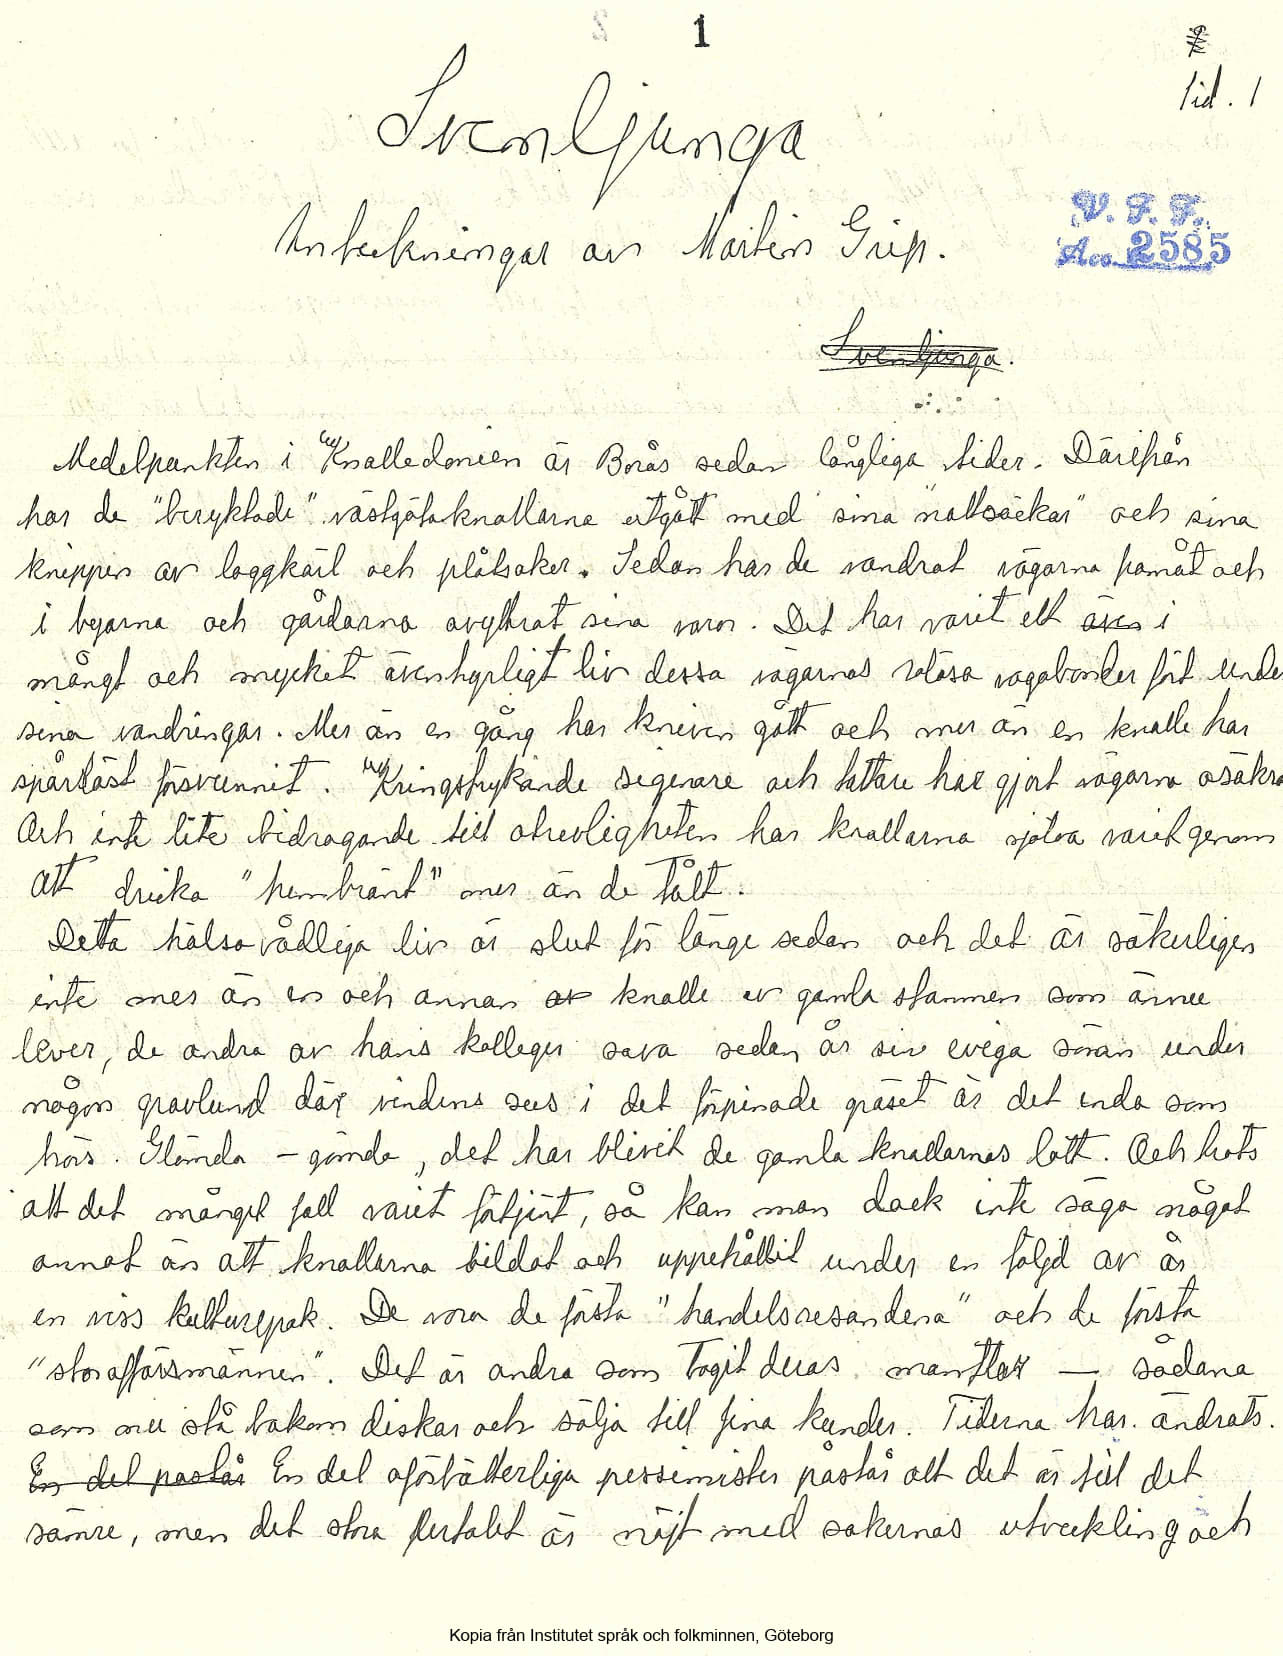 1
Sid. 1
Svenljunga
Anteckningar av Martin Grip.
V. F. F.
Acc. 2585
Svenljunga.
Medelpunkten i Knalledonien är Borås sedan långliga tider. Därifrån
har de "beryktade" västgötaknallarna utgått med sina "nattsäckar" och sina
knippen av laggkärl och plåtsaker. Sedan har de vandrat vägarna framåt och
i byarna och gårdarna avyttrat sina varor. Det har varit ett även i
mångt och mycket äventyrligt liv dessa vägarnas rolösa vagabonder fört under
sina vandringar. Mer än en gång har kniven gått och mer än en knalle har
spårlöst försvunnit. Kringstrykande zigenare och tattare har gjort vägarna osäkra
Och inte lite bidragande till otrevligheten har knallarna själva varit genom
att dricka "hembränt" mer än de tålt.
Detta hälsovådliga liv är slut för länge sedan och det är säkerligen
inte mer än en och annan av knalle av gamla stammen som ännu
lever, de andra av hans kolleger sova sedan år sin eviga sömn under
någon gravlund där vindens sus i det förpinade gräset är det enda som
hörs. Glömda - gömda, det har blivit de gamla knallarnas lott. Och trots
att det i många fall varit förtjänt, så kan man dock inte säga något
annat än att knallarna bildat och uppehållit under en följd av år
en viss kulturepok. De vora de första "handelsresandena" och de första
"storaffärsmännen". Det är andra som tagit deras mantlar — sådana
som nu stå bakom diskar och sälja till fina kunder. Tiderna har ändrats.
En del påstår En del oförbätterliga pessimister påstår att det är till det
sämre, men det stora flertalet är nöjt med sakernas utveckling och
Kopia från Institutet språk och folkminnen, Göteborg